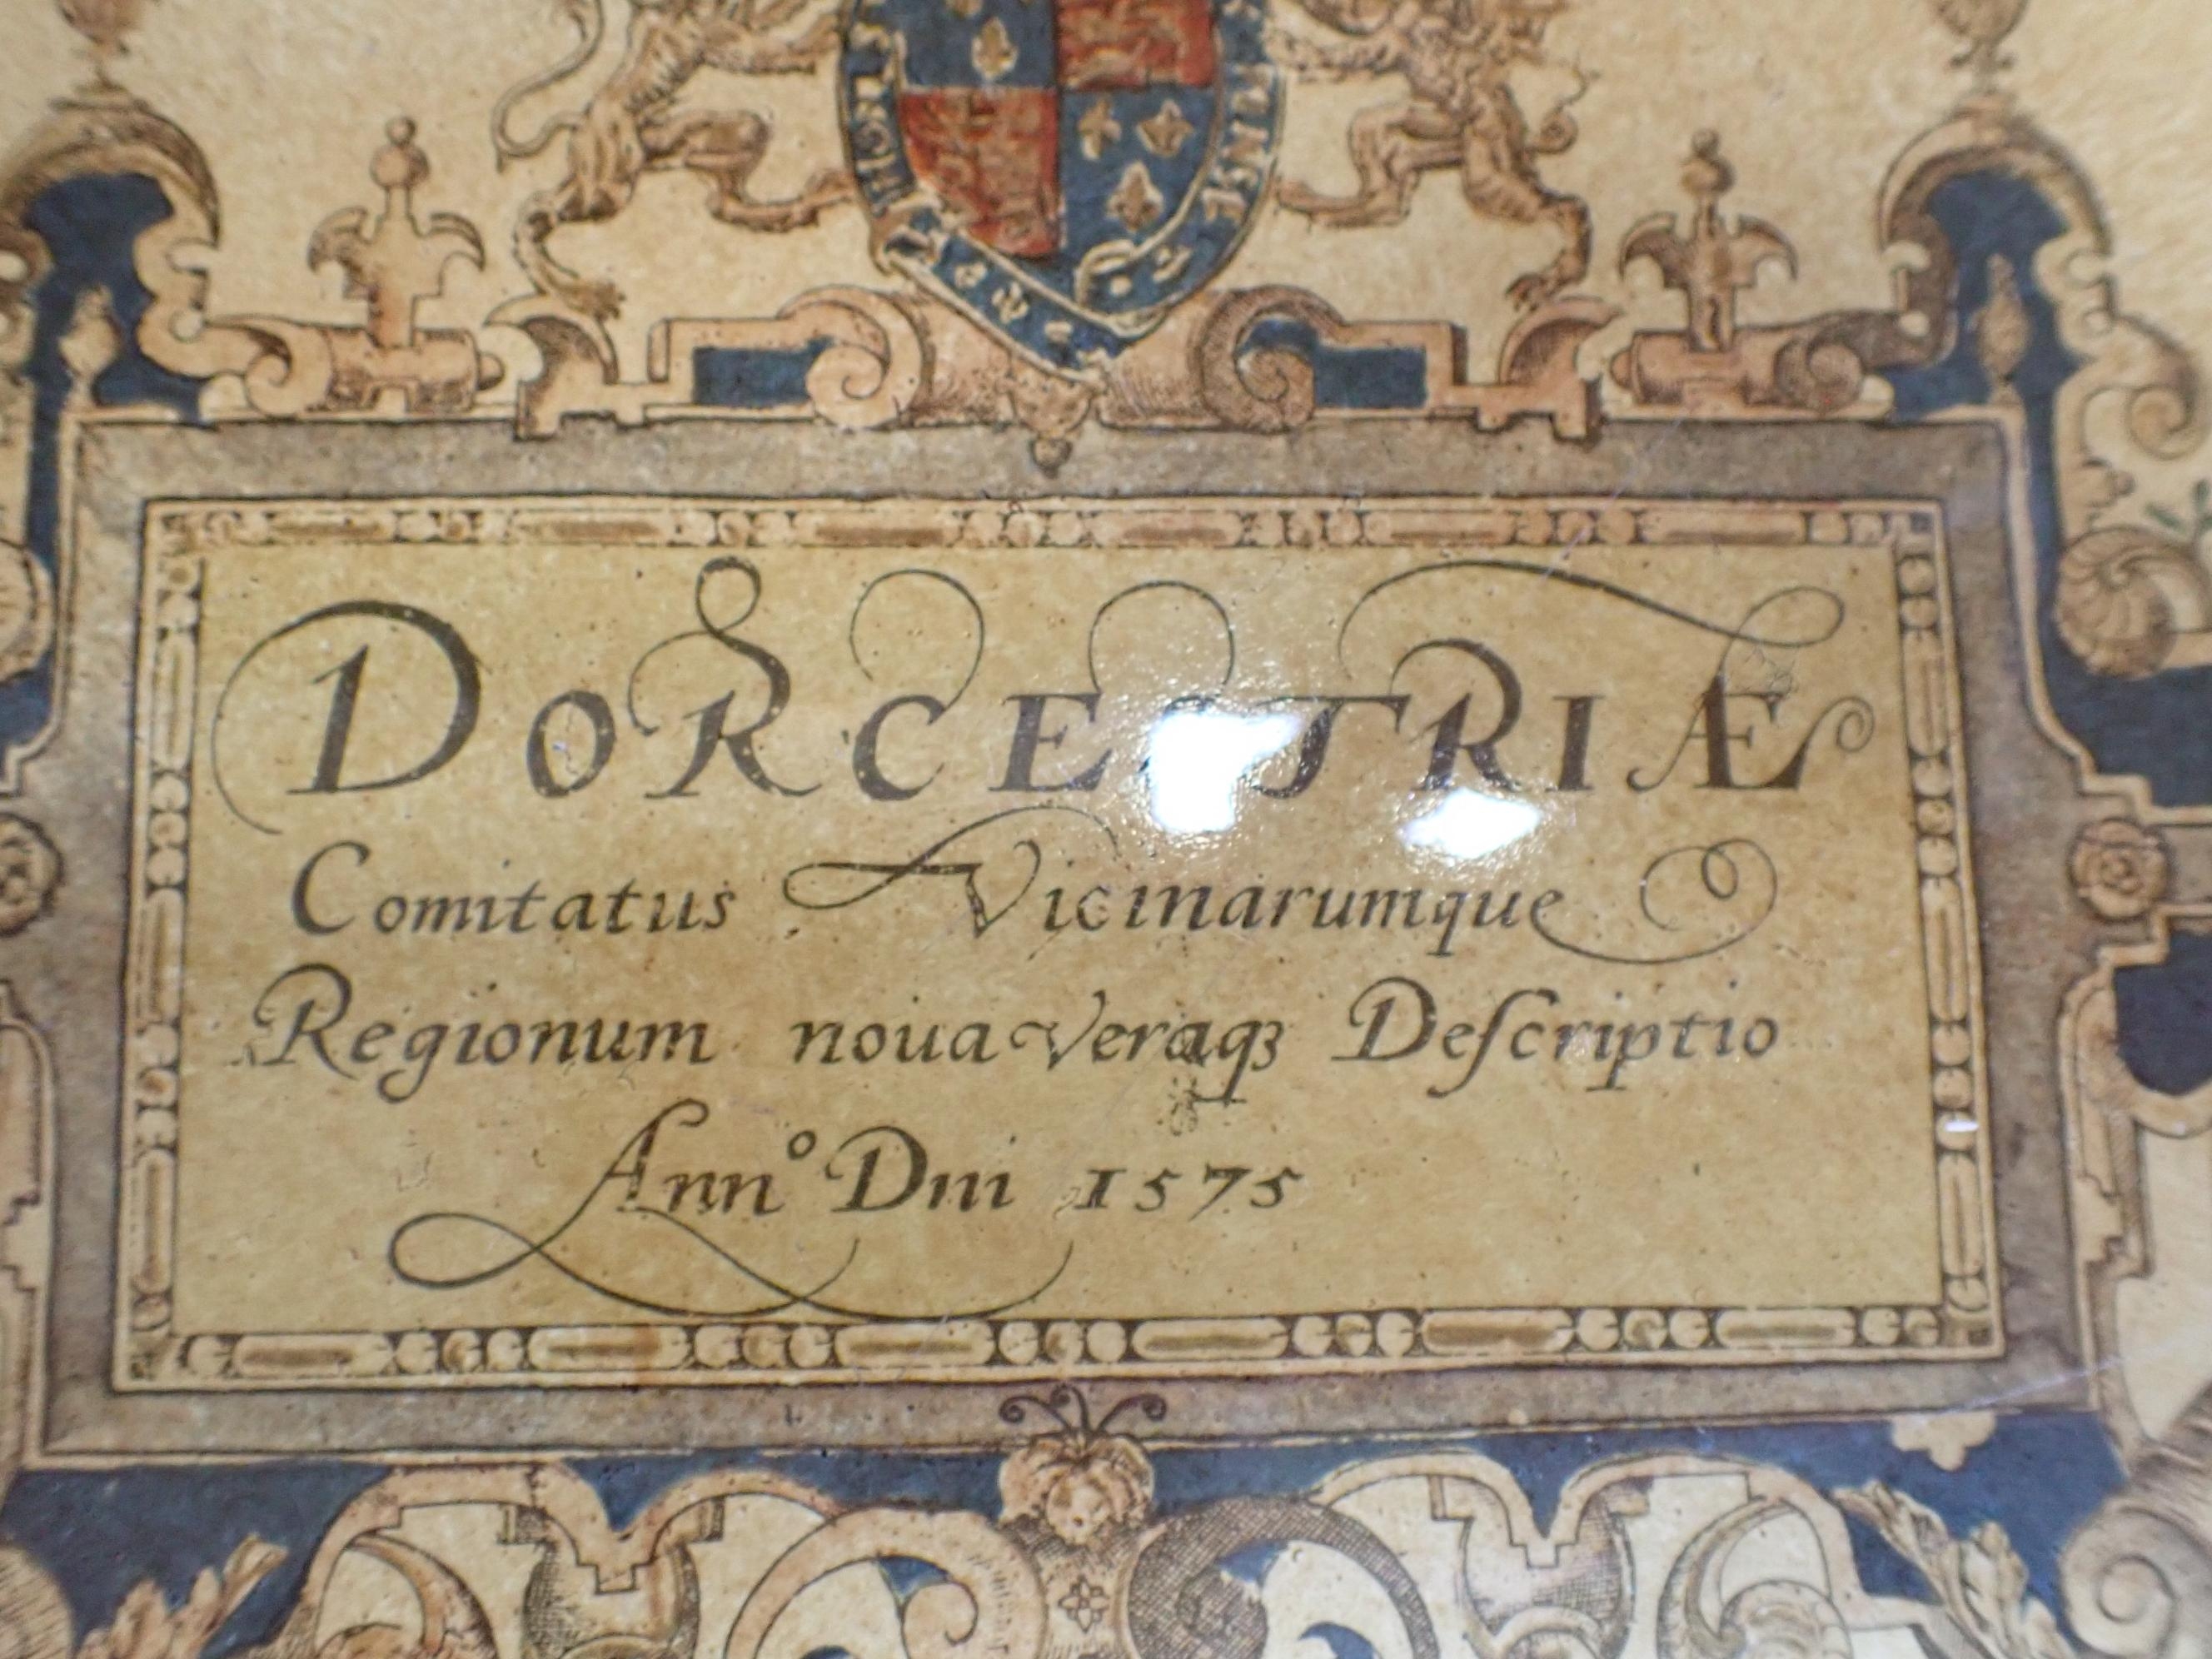 DORCESTRIÆ
Comitatus Vicinarumque
Regionum noua Veraqꝫ Deſcriptio
Annº Dni 1575